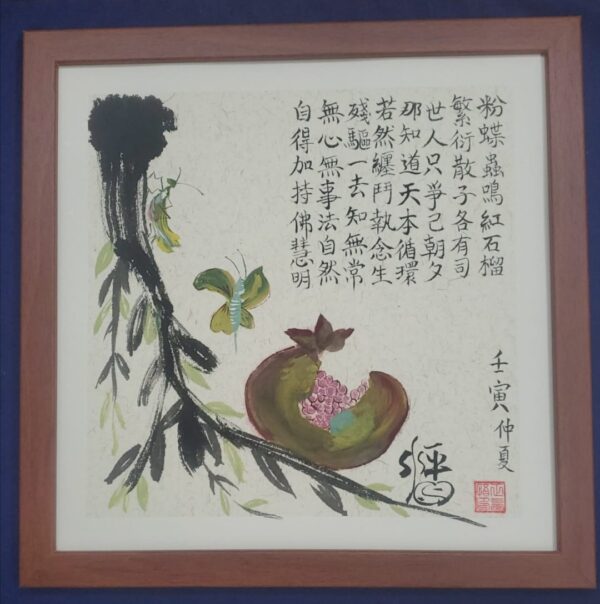 粉蝶蟲鳴紅石榴
繁衍散子各有司
世人只爭己朝夕
那知道天本循環
若然纏鬥執念生
殘驅一去知無常
無心無事法自然
自得加持佛慧明
壬寅仲夏